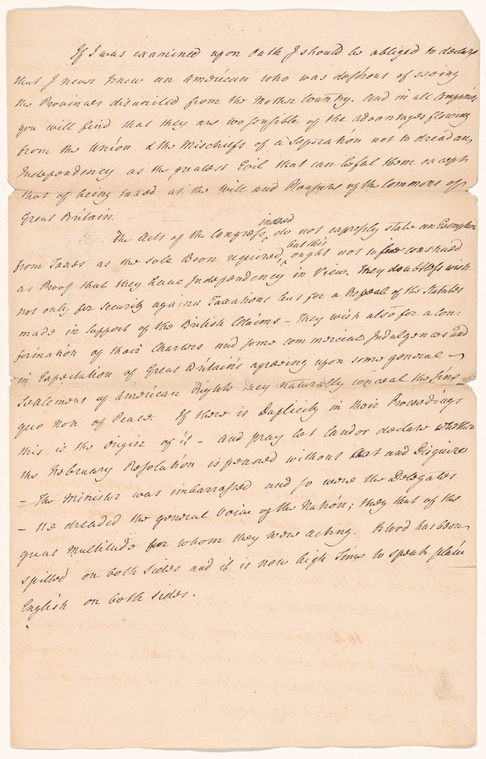 If I was examined upon Oath I should be obliged to declare
that I never knew an American who was desirous of seeing
the Provinces disunited from the Mother Country. And in all Companies
you will find that they are too sensible of the advantages flowing
from the Union & the Mischiefs of a Separation not to dread an
Independency as the greatest Evil that can befal them except
that of being taxed at the will and Pleasure of the Commons of
Great Britain.
The Acts of the Congress indeed do not expressly state an Exemption
from Taxes as the sole Boon required, but this ought not to be construed
as Proof that they have Independency in View. They doubtless wish
not only for security against Taxations but for a Repeal of the Statutes
made in support of the British Claims – They wish also for a con-
firmation of their Charters and some commercial Indulgences and
in Expectation of Great Britain's agreeing upon some general
Settlement of American Rights they naturally conceal the Sine
quo Non of Peace. If there is Duplicity in their Proceedings
this is the Origin of it – and pray let Candor declare whether
the February Resolution is penned without Art and Disguise
– The Minister was imbarrassed and so were the Delegates
– He dreaded the general Voice of the Nation; they that of the
great Multitude for whom they were acting. Blood has been
spilled on both sides and it is now high Time to speak plain
English on both sides.